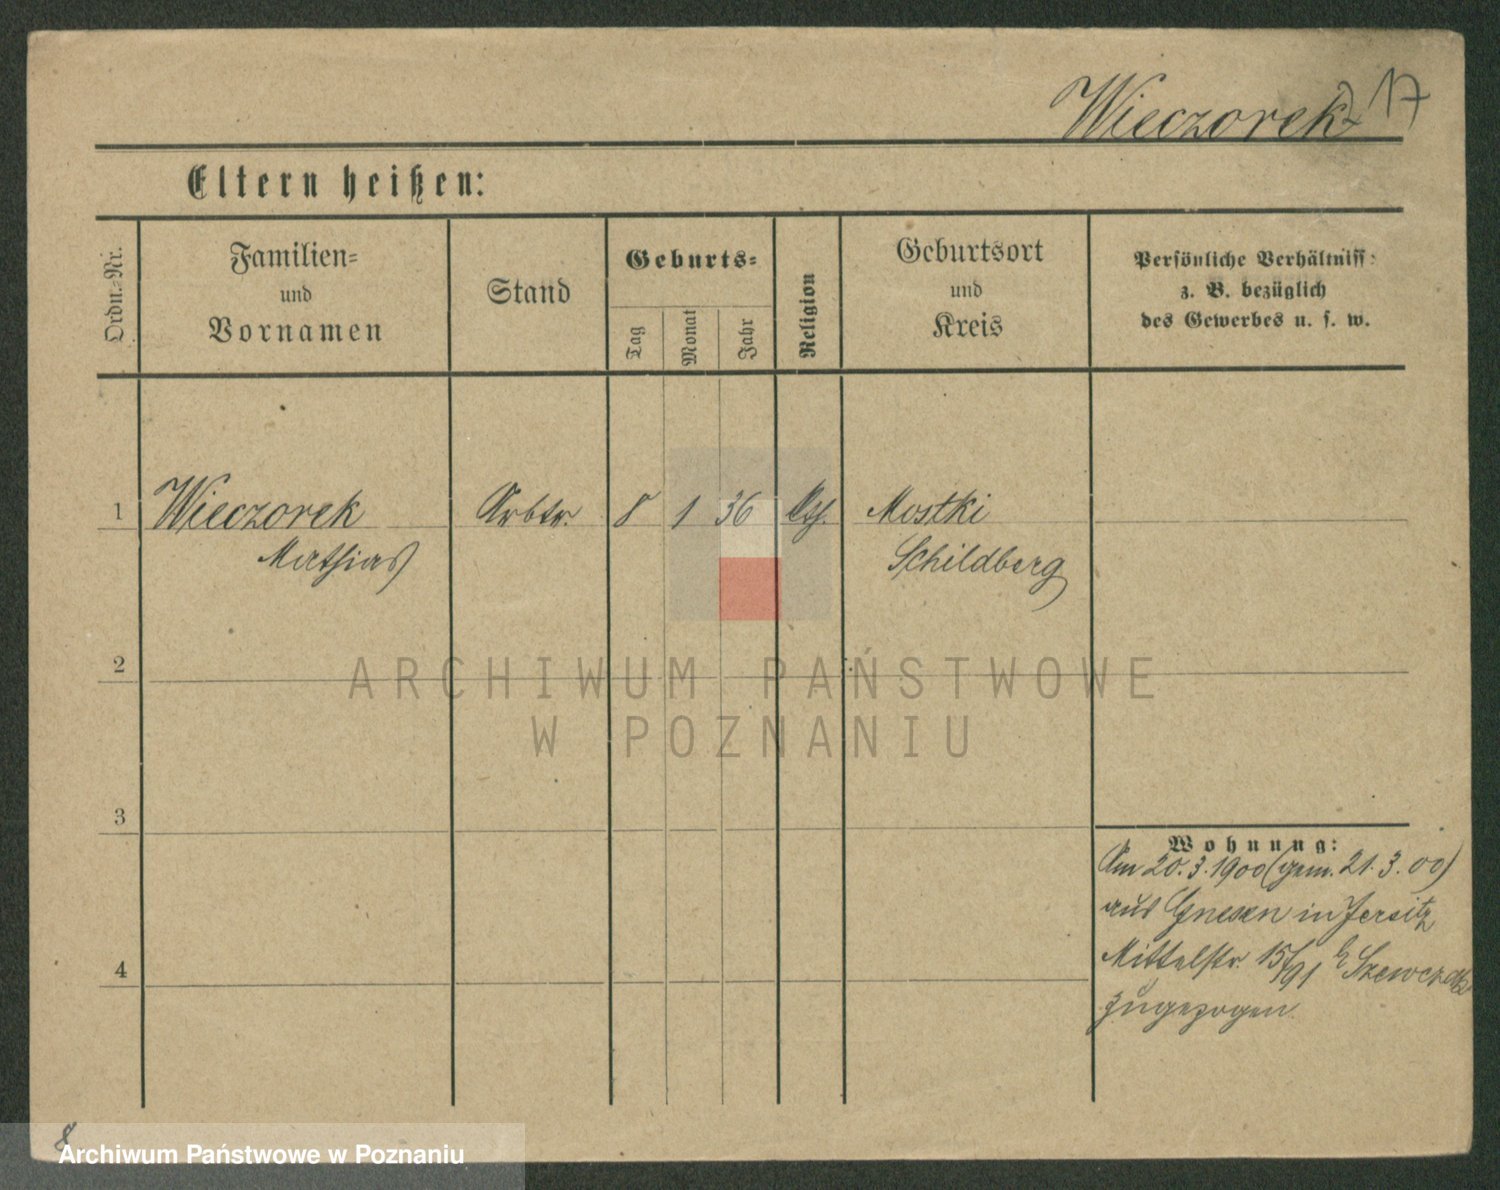 Wieczorek 17
Eltern heißen:
Ordn.-Nr.
Familien-
und
Vornamen
Stand
Geburts-
Tag
Monat
Jahr
Religion
Geburtsort
und
Kreis
Persönliche Verhältniss-
z. B. bezüglich
des Gewerbes u. s. w.
1 Wieczorek Arbtr. 8 1 36 kth. Mostki
Mathias Schildberg
2
ARCHIWUM PAŃSTWOWE
W POZNANIU
3
Wohnung:
Am 20.3.1900 (gem. 21.3.00)
aus Gnesen in Jersitz
4
Mittelstr. 15/91 b Szewczak
zugezogen
8
Archiwum Państwowe w Poznaniu